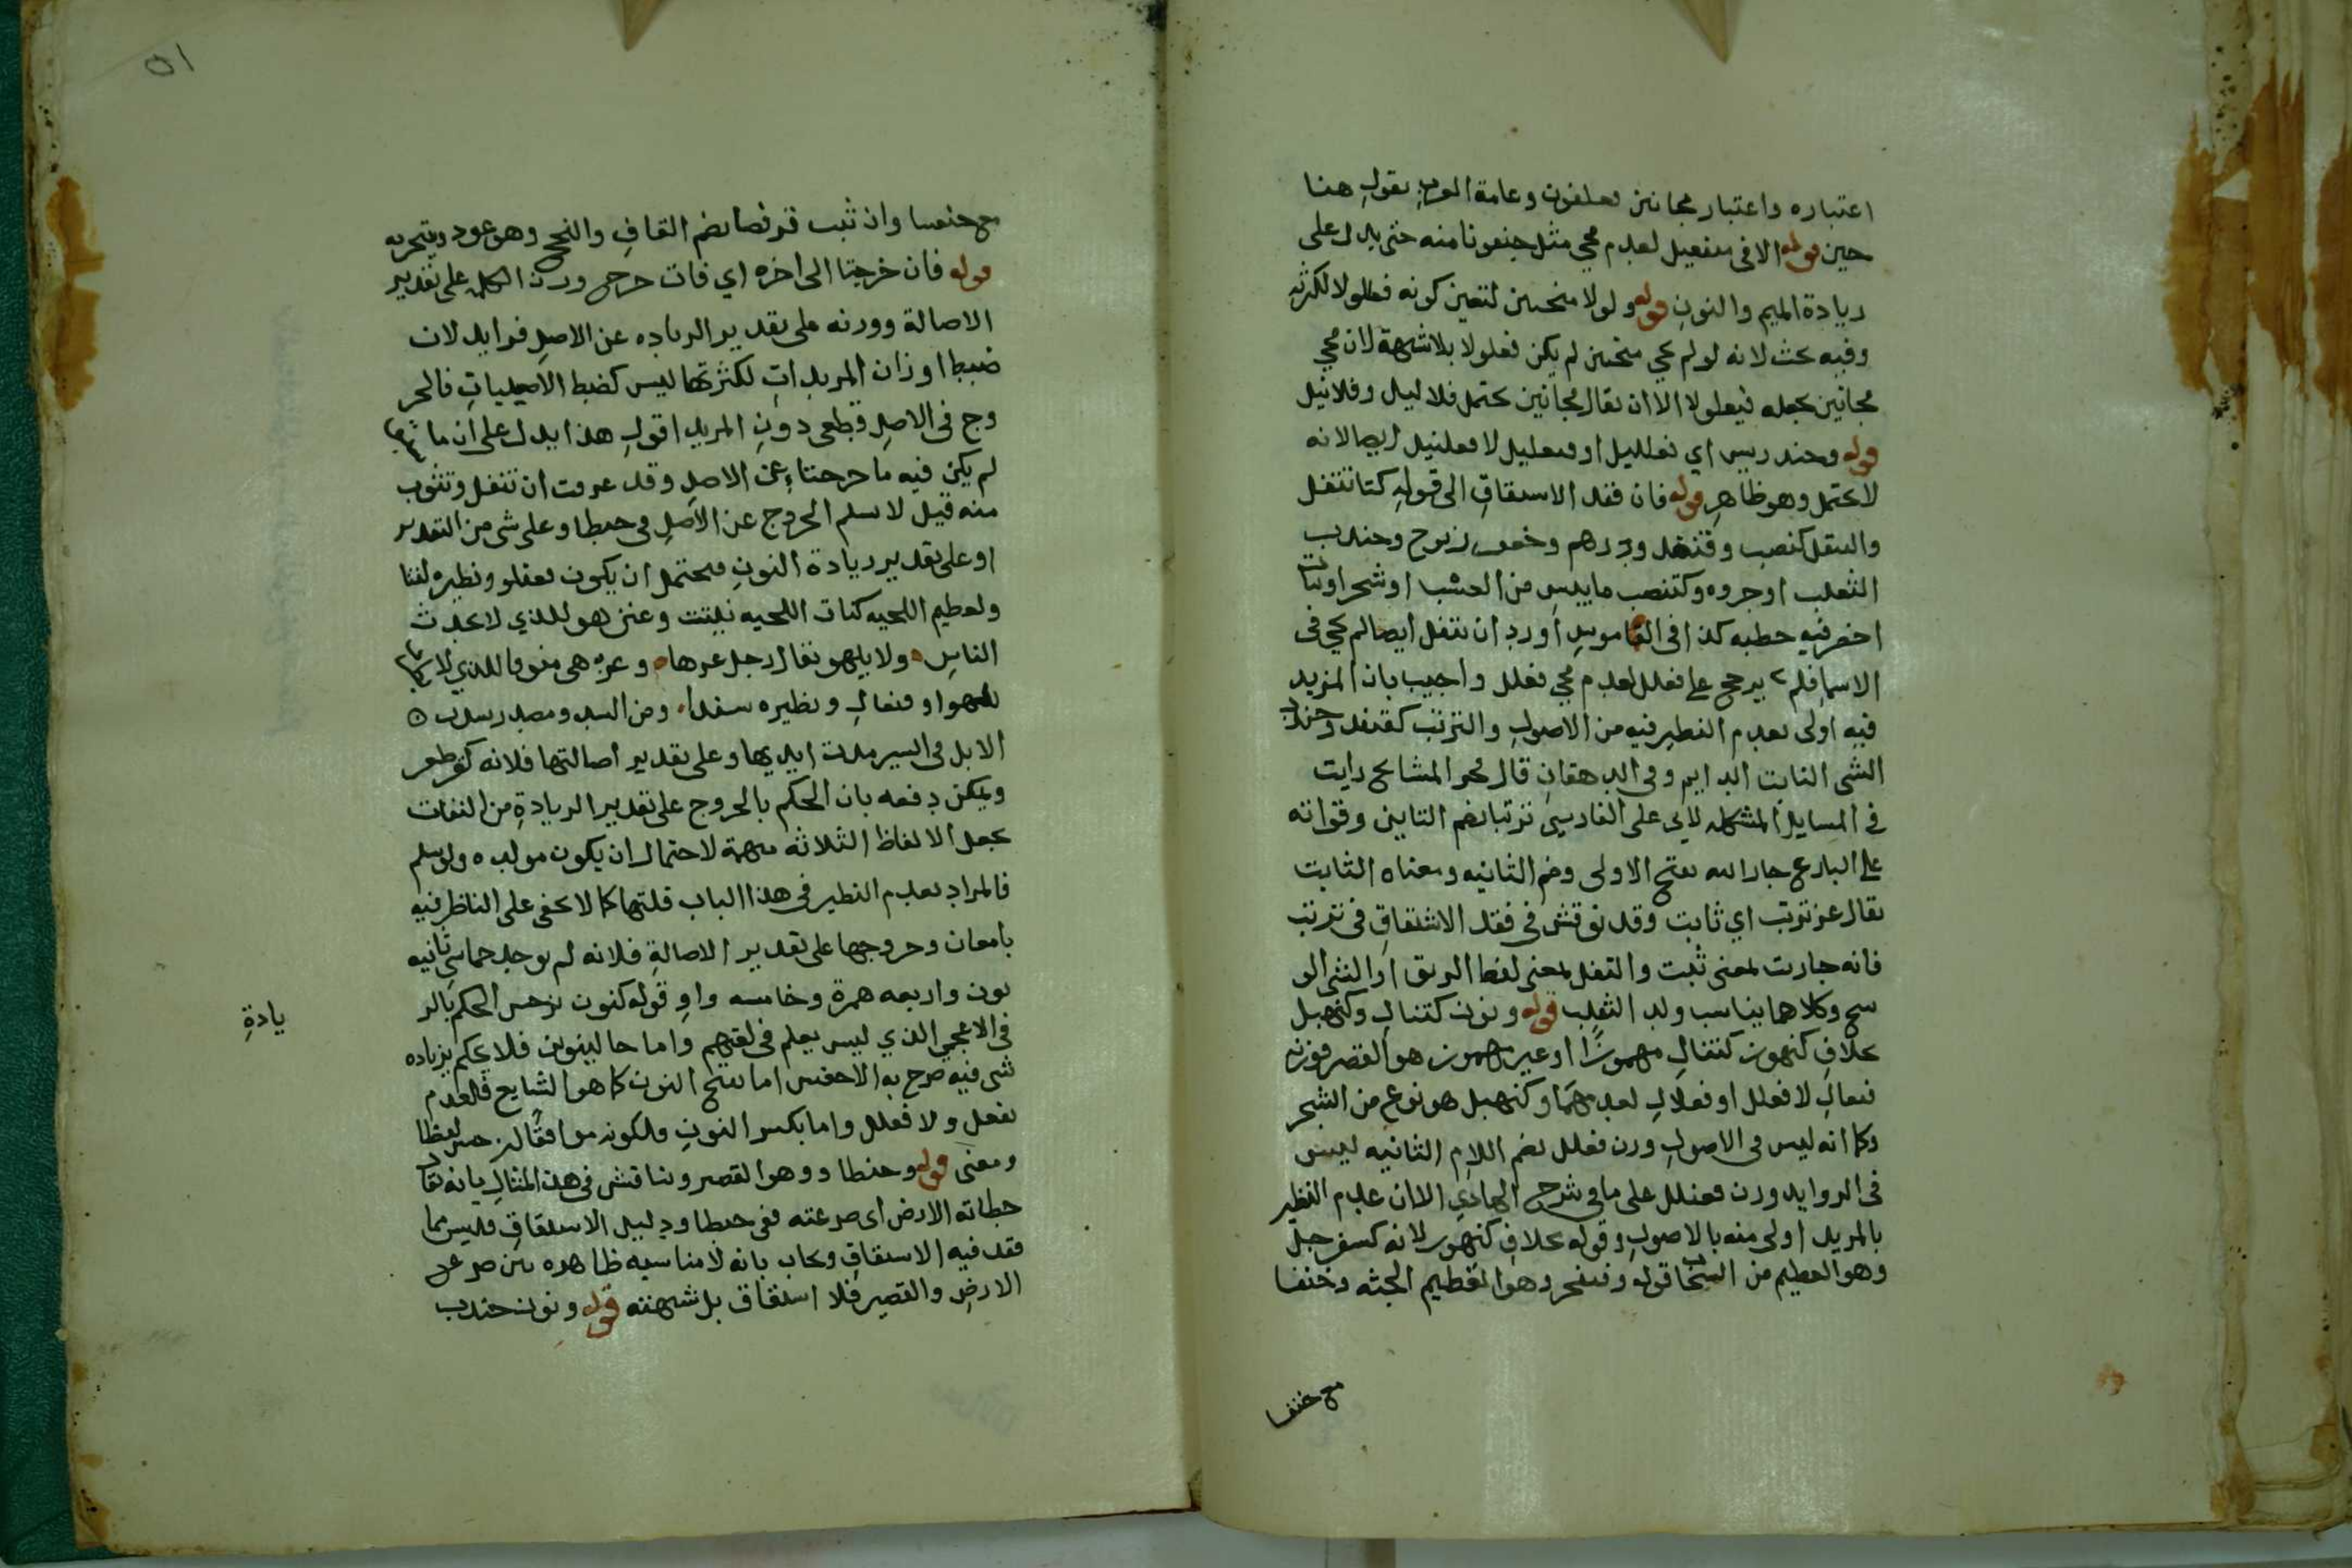 اعتباره واعتبار مجانين فعلفون وعامة العرب بقول هنا
حين قوله الا فى منفعيل لعدم مجي مثل جنعونا منه حتى يدل على
زيادة الميم والنون قوله ولولا منجنين لتعين كونه فعللولا لكثرته
وفيه بحث لانه لو لم يجي منجنين لم يكن فعلولا بلا شبهة لان مجي
مجانين يجعله فيعلولا الا ان يقال مجانين يحتمل فلاليل وفلانيل
قوله وخندريس اي فعلليل او فنعليل لا فعلنيل ايضا لانه
لا يحتمل وهو ظاهر قوله فان فقد الاشتقاق الى قوله كتاتتفل
والتتفل كتنصب وقنفد ودرهم وجعفر وزبرج وجندب
الثعلب او جروه وكتنصب ما يبس من العشب او شجر او نبات
اخضر فيه خطبه كذا فى القاموس اورد ان تتفل ايضا لم يجي فى
الاسما فلم يرجح على فعلل لعدم مجي فعلل واجيب بان المزيد
فيه اولى بعدم النظير فيه من الاصول والترتب كقنفد وجندب
الشى الثابت الدايم وفى الدهقان قال فخر المشايخ رايت
فى المسايل المشكله لابى على الفارسي ترتبا بضم التاين وقراته
على البارع جار الله بفتح الاولى وضم الثانيه ومعناه الثابت
يقال عز ترتب اي ثابت وقد نوقش فى فقد الاشتقاق فى ترتب
فانه جا رتب بمعنى ثبت والتفل بمعنى لفظ الريق او الشى الو
سخ وكلاهما يناسب ولد الثعلب قوله ونون كنتال وكنهبل
بخلاف كنهور كنتفال مهموزا او غير مهموز هو القصر فوزنه
فنعال لا فعلل او فعلال لعدمهما وكنهبل هو نوع من الشجر
وكما انه ليس فى الاصول وزن فعلل بضم اللام الثانيه ليس
فى الزوايد وزن فعنلل على ما فى شرح الهادي الا ان عدم النظير
بالمزيد اولى منه بالاصول وقوله بخلاف كنهور لانه كسفرجل
وهو العظيم من السحاب قوله وفنفخر وهو العظيم الجثه وخنفسا
مع خنفسا
٥١
مع خنفسا وان ثبت قرفصا بضم القاف والنجج وهو عود يتبخر به
قوله فان خرجتا الى اخره اي فات خرج وزن الكلمه على تقدير
الاصالة ووزنه على تقدير الزياده عن الاصل فزايد لان
ضبط اوزان المزيدات لكثرتها ليس كضبط الاصليات فالخر
وج فى الاصل قطعى دون المزيد اقول هذا يدل على ان ما
لم يكن فيه ما خرجتا عن الاصل وقد عرفت ان تتفل وترتب
منه قيل لا نسلم الخروج عن الاصل فى حنطاو على شى من التقدير
او على تقدير زيادة النون فيحتمل ان يكون فعنلو ونظيره كنتا
ولعظيم اللحيه كتات اللحيه نبتت وعنزهو للذي لا يحدث
الناس ولا يلهو يقال رجل عزهاه وعزهى منونا للذي لا
للهو او فنعال ونظيره سندا من السد ومصدر سدت
الابل فى السير مدت ايديها وعلى تقدير اصالتها فلانه كقرطعر
ويمكن دفعه بان الحكم بالخروج على تقدير الزيادة من الثقات
يجعل الالفاظ الثلاثه مبهمة لاحتمال ان يكون مولده ولو سلم
فالمراد بعدم النظير فى هذا الباب قلتها كما لا يخفى على الناظر فيه
بامعان وخروجها على تقدير الاصالة فلانه لم يوجد خماسي ثانيه
نون ورابعه همزة وخامسه واو قوله كنون نرجس الحكم بالز
يادة
فى الاعجمى الذي ليس بعلم فى لغتهم واما جالينوس فلا يحكم بزياده
شى فيه صرح به الاخفش اما بفتح النون كما هو الشايع فلعدم
نفعل ولا فعلل واما بكسر النون فلكونه موافقا لنرجس لفظا
ومعنى قوله وحنطاو وهو القصير ونناقش فى هذا المثال بانه يقال
حطاته الارض اى صرعته ففى حنطاو دليل الاشتقاق فليس مما
فقد فيه الاشتقاق ويجاب بانه لا مناسبه ظاهره بين صرعى
الارض والقصير فلا اشتقاق بل شبهته قوله ونون جندب